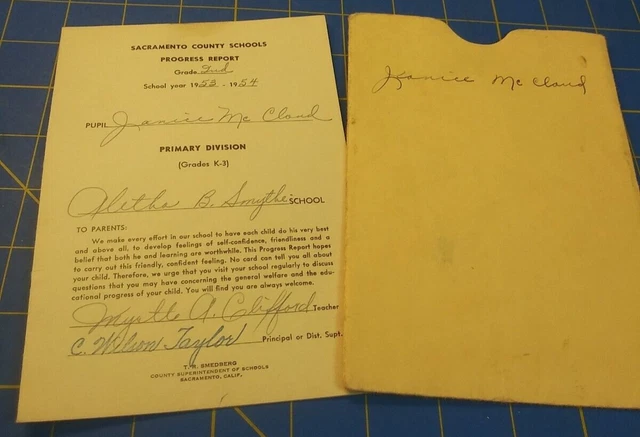 SACRAMENTO COUNTY SCHOOLS
PROGRESS REPORT
Grade 2nd
School year 1953 - 1954
PUPIL Janice Mc Cloud
PRIMARY DIVISION
(Grades K-3)
Aletha B. Smythe SCHOOL
TO PARENTS:
We make every effort in our school to have each child do his very best
and above all, to develop feelings of self-confidence, friendliness and a
belief that both he and learning are worthwhile. This Progress Report hopes
to carry out this friendly, confident feeling. No card can tell you all about
your child. Therefore, we urge that you visit your school regularly to discuss
questions that you may have concerning the general welfare and the edu-
cational progress of your child. You will find you are always welcome.
Myrtle A. Clifford Teacher
C. Wilson Taylor Principal or Dist. Supt.
T. R. SMEDBERG
COUNTY SUPERINTENDENT OF SCHOOLS
SACRAMENTO, CALIF.
Janice Mc Cloud